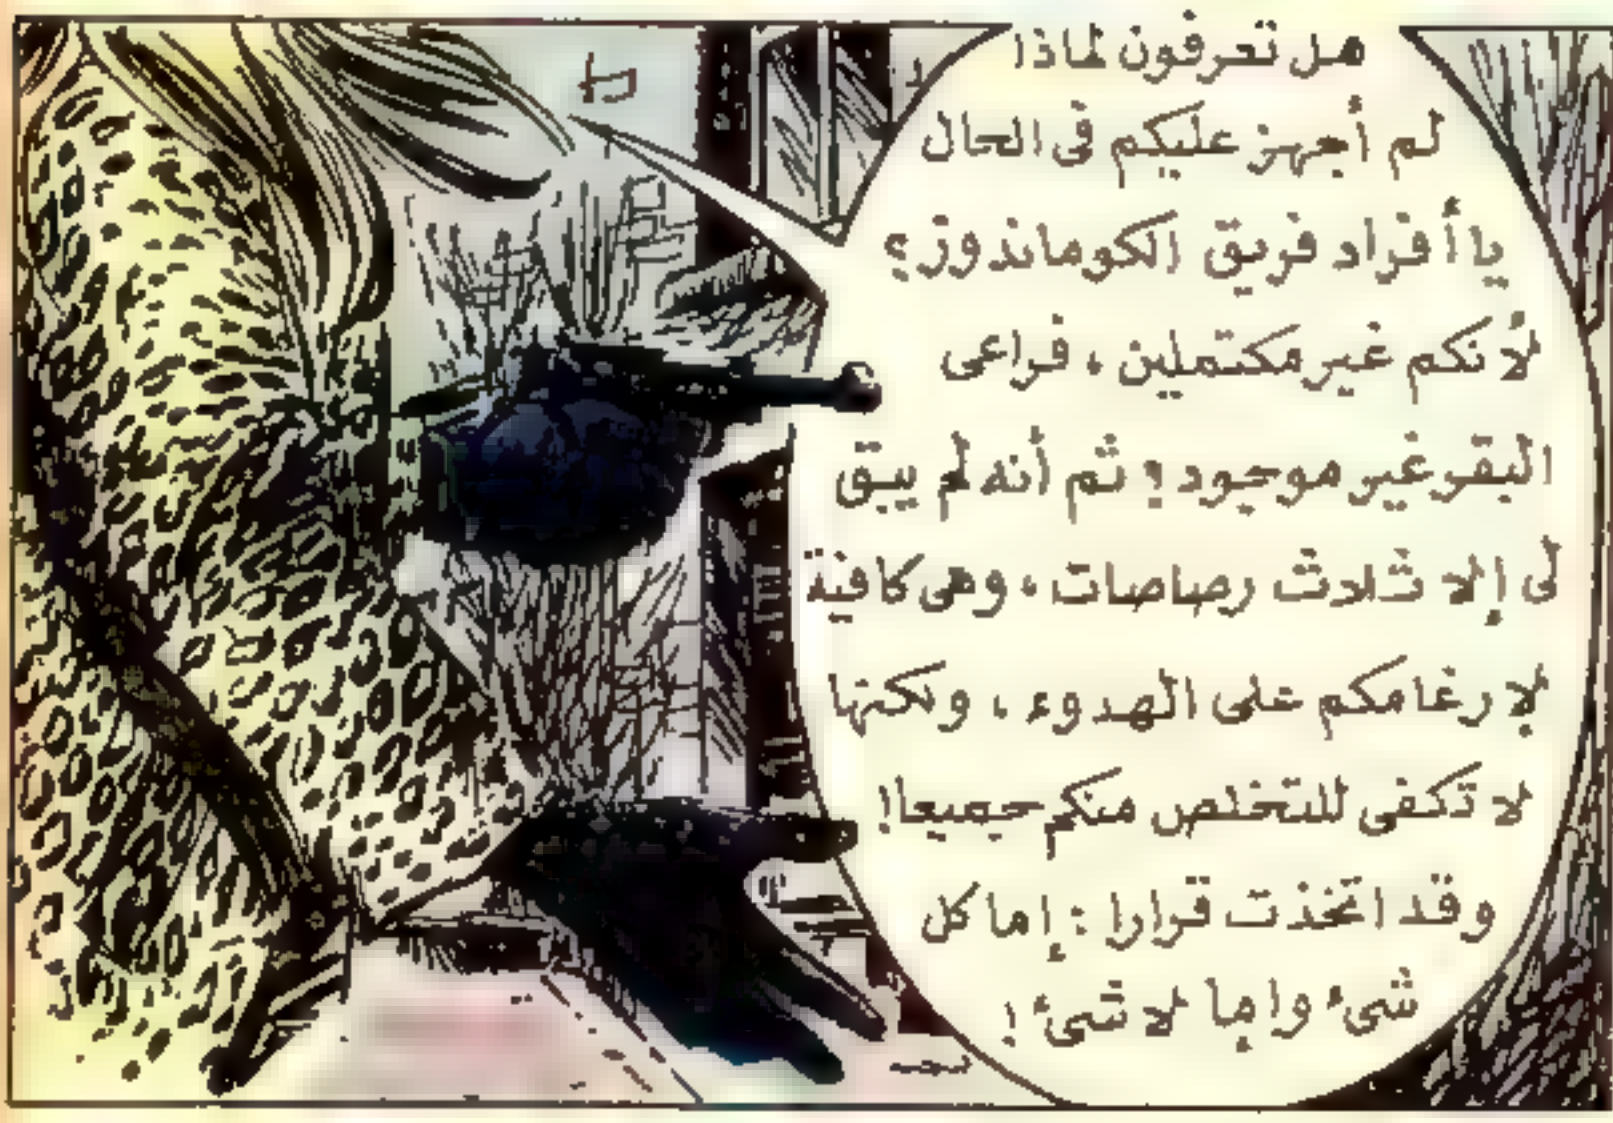 هل تعرفون لماذا
لم أجهز عليكم فى الحال
يا أفراد فريق الكوماندوز؟
لأنكم غير مكتملين ، فراعى
البقر غير موجود ! ثم أنه لم يبق
لى إلا ثلاث رصاصات ، وهى كافية
لإرغامكم على الهدوء ، ولكنها
لا تكفى للتخلص منكم جميعا!
وقد اتخذت قرارا : إما كل
شىء وإما لا شىء !